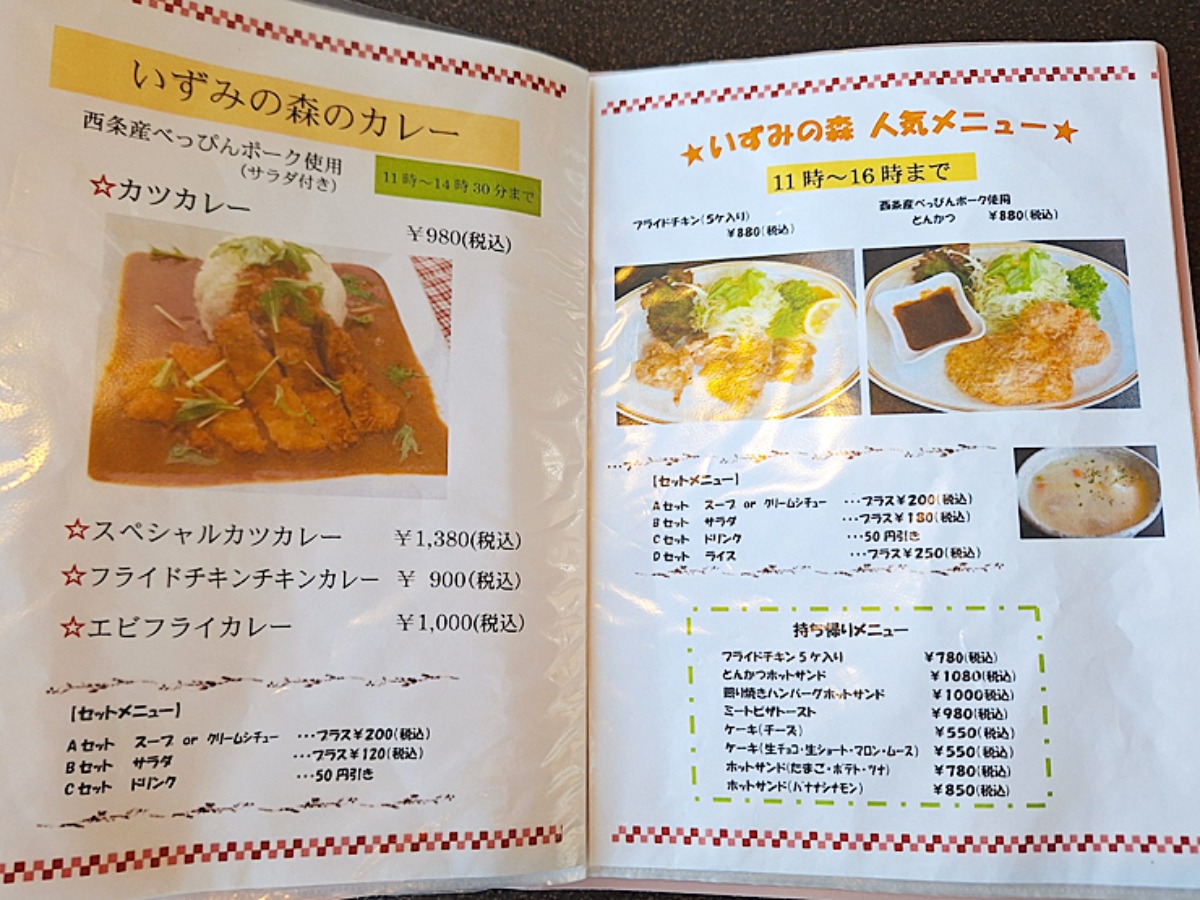 いずみの森のカレー
西条産べっぴんポーク使用
(サラダ付き)
11時～14時30分まで
☆カツカレー
￥980(税込)
☆スペシャルカツカレー ￥1,380(税込)
☆フライドチキンチキンカレー ￥ 900(税込)
☆エビフライカレー ￥1,000(税込)
【セットメニュー】
Aセット スープ or クリームシチュー ･･･プラス￥200(税込)
Bセット サラダ ･･･プラス￥120(税込)
Cセット ドリンク ･･･50円引き
★いずみの森 人気メニュー★
11時～16時まで
フライドチキン(5ケ入り)
￥880(税込)
西条産べっぴんポーク使用
とんかつ ￥880(税込)
【セットメニュー】
Aセット スープ or クリームシチュー ･･･プラス￥200(税込)
Bセット サラダ ･･･プラス￥180(税込)
Cセット ドリンク ･･･50円引き
Dセット ライス ･･･プラス￥250(税込)
持ち帰りメニュー
フライドチキン5ケ入り ￥780(税込)
とんかつホットサンド ￥1080(税込)
照り焼きハンバーグホットサンド ￥1000税込)
ミートピザトースト ￥980(税込)
ケーキ(チーズ) ￥550(税込)
ケーキ(生チョコ･生ショート･マロン･ムース) ￥550(税込)
ホットサンド(たまご･ポテト･ツナ) ￥780(税込)
ホットサンド(バナナシナモン) ￥850(税込)